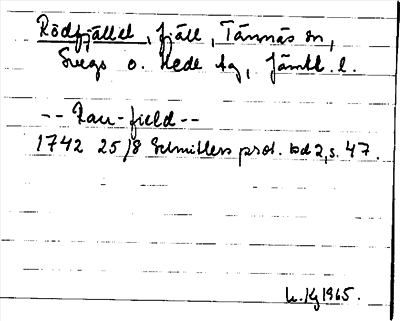 Rödfjället, fjäll, Tännäs sn,
Svegs o. Hede tg, Jämtl. l.
-- Rau-field --
1742 25/8 Schnitlers prot. bd 2, s. 47.
1965.